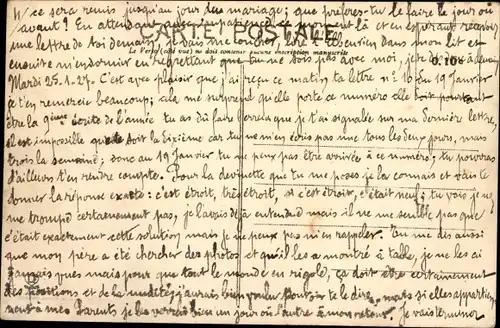 ce sera remis jusqu'au jour du mariage; que préfères-tu le faire le jour où
avant? En attendant aussi patience ce moment là et en espérant recevoir
CARTE POSTALE
une lettre de toi demain, je vais me coucher, lire le dans mon lit et
Ce côté est exclusivement réservé à l'adresse
ensuite m'endormir en regrettant que tu ne sois pas avec moi, je
Mardi 25-1-27. C'est avec plaisir que j'ai reçu ce matin ta lettre n° 10 du 19 Janvier
je t'en remercie beaucoup; cela me surprend qu'elle porte ce numéro elle doit pourtant
être la 9ème écrite de l'année tu as dû faire erreur que je t'ai signalée sur ma dernière lettre,
il est impossible que ce soit la dixième car tu ne m'en écris pas une tous les deux jours, mais
trois la semaine; donc au 19 Janvier tu ne peux pas être arrivée à ce numéro; tu pourras
d'ailleurs t'en rendre compte. Pour la devinette que tu me poses je la connais et vais te
donner la réponse exacte: c'est étroit, très étroit, si c'est étroit, c'était neuf; tu vois je ne
me trompe certainement pas, je l'avais déjà entendue mais il ne me semble pas que
c'était exactement cette solution mais je ne peux pas m'en rappeler. Tu me dis aussi
que mon père a été chercher des photos et qu'il les a montré à table, je ne les ai
jamais vues mais pour que tout le monde en rigole, ça doit être certainement
des positions et de la nudité; j'aurais bien voulu pouvoir te le dire, mais si elles appartien-
nent à mes Parents je les verrai bien un jour où l'autre à mon retour. Je vais terminer